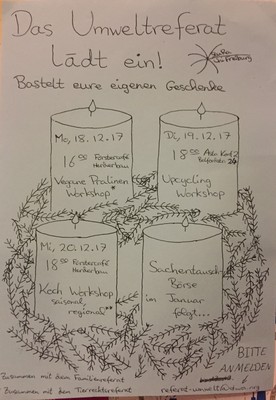 Das Umweltreferat
Lädt ein!
StuRa
Uni Freiburg
Bastelt eure eigenen Geschenke
Mo, 18.12.17
16:00 Förstercafé
Herderbau
Vegane Pralinen
Workshop*
Di, 19.12.17
18:00 AStA Konf 2
Belfortstr. 24
Upcycling
Workshop
Mi, 20.12.17
18:00 Förstercafé
Herderbau
Koch Workshop
saisonal
regional
Sachentausch-
Börse
im Januar
folgt...
BITTE
ANMELDEN
Zusammen mit dem Familienreferat
Zusammen mit dem Tierrechtsreferat